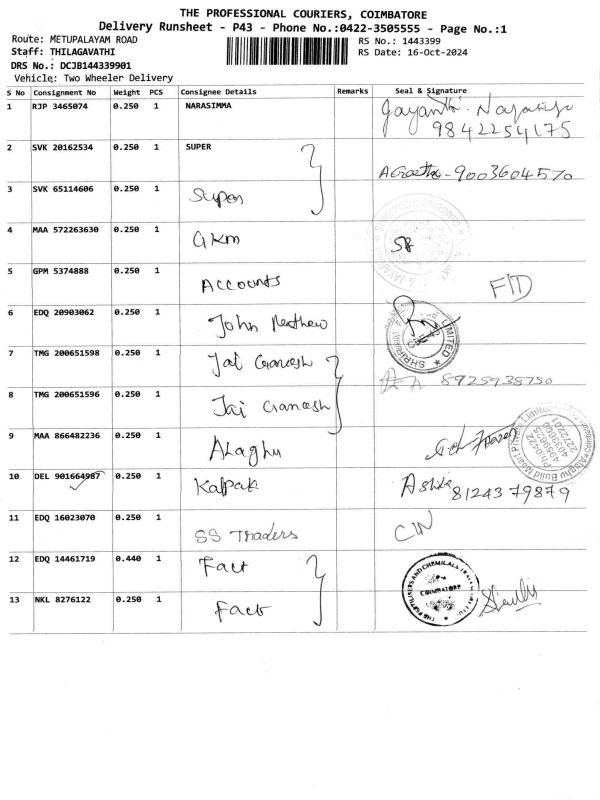 THE PROFESSIONAL COURIERS, COIMBATORE
Delivery Runsheet - P43 - Phone No.:0422-3505555 - Page No.:1
Route: METUPALAYAM ROAD
Staff: THILAGAVATHI
DRS No.: DCJB144339901
Vehicle: Two Wheeler Delivery
RS No.: 1443399
RS Date: 16-Oct-2024
S No Consignment No Weight PCS Consignee Details Remarks Seal & Signature
1 RJP 3465074 0.250 1 NARASIMMA Gayanthi
9842254175
2 SVK 20162534 0.250 1 SUPER 9003604570
3 SVK 65114606 0.250 1 Super
4 MAA 572263630 0.250 1 GKM
5 GPM 5374888 0.250 1 Accounts FID
6 EDQ 20903062 0.250 1 John Mathew
7 TMG 200651598 0.250 1 Jai Ganesh
8925938750
8 TMG 200651596 0.250 1 Jai Ganesh
9 MAA 866482236 0.250 1 Alaghu
10 DEL 901664987 0.250 1 Kalpak 8124379879
11 EDQ 16023070 0.250 1 SS Traders
12 EDQ 14461719 0.440 1 Fact
COIMBATORE
13 NKL 8276122 0.250 1 Fact